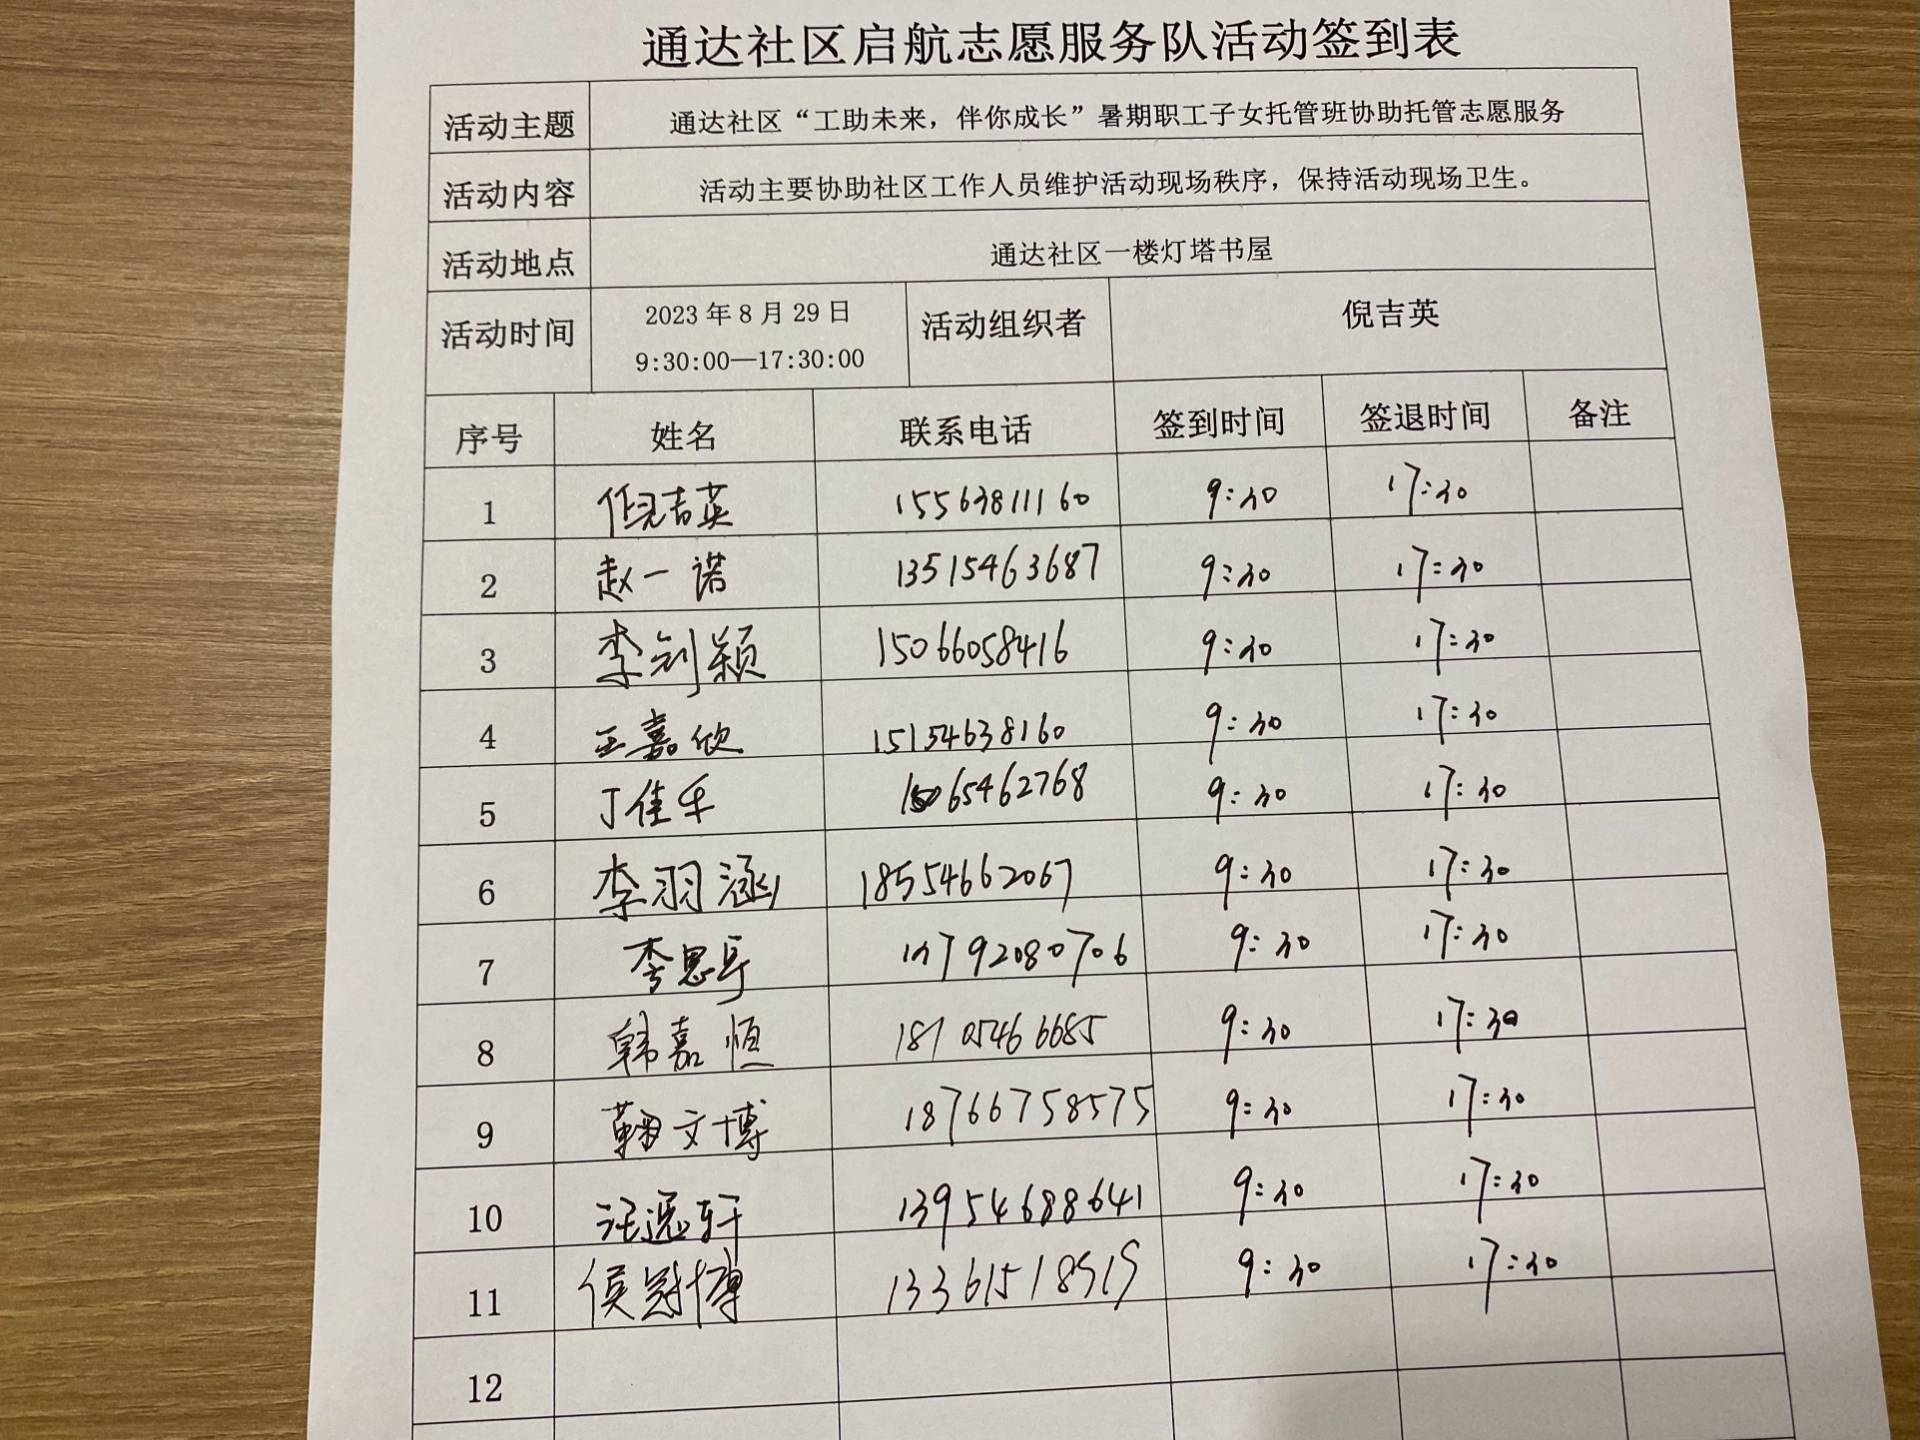 通达社区启航志愿服务队活动签到表
活动主题 通达社区“工助未来，伴你成长”暑期职工子女托管班协助托管志愿服务
活动内容 活动主要协助社区工作人员维护活动现场秩序，保持活动现场卫生。
活动地点 通达社区一楼灯塔书屋
活动时间 2023年8月29日 9:30:00—17:30:00 活动组织者 倪吉英
序号 姓名 联系电话 签到时间 签退时间 备注
1 倪吉英 15563811160 9:30 17:30
2 赵一诺 13515463687 9:30 17:30
3 李钊颖 15066058416 9:30 17:30
4 王嘉欣 15154638160 9:30 17:30
5 丁佳乐 15065462768 9:30 17:30
6 李羽涵 18554662067 9:30 17:30
7 李思 9:30 17:30
8 韩嘉恒 18105466685 9:30 17:30
9 鞠文博 18766758575 9:30 17:30
10 汪远轩 13954688641 9:30 17:30
11 侯冠博 13361518519 9:30 17:30
12